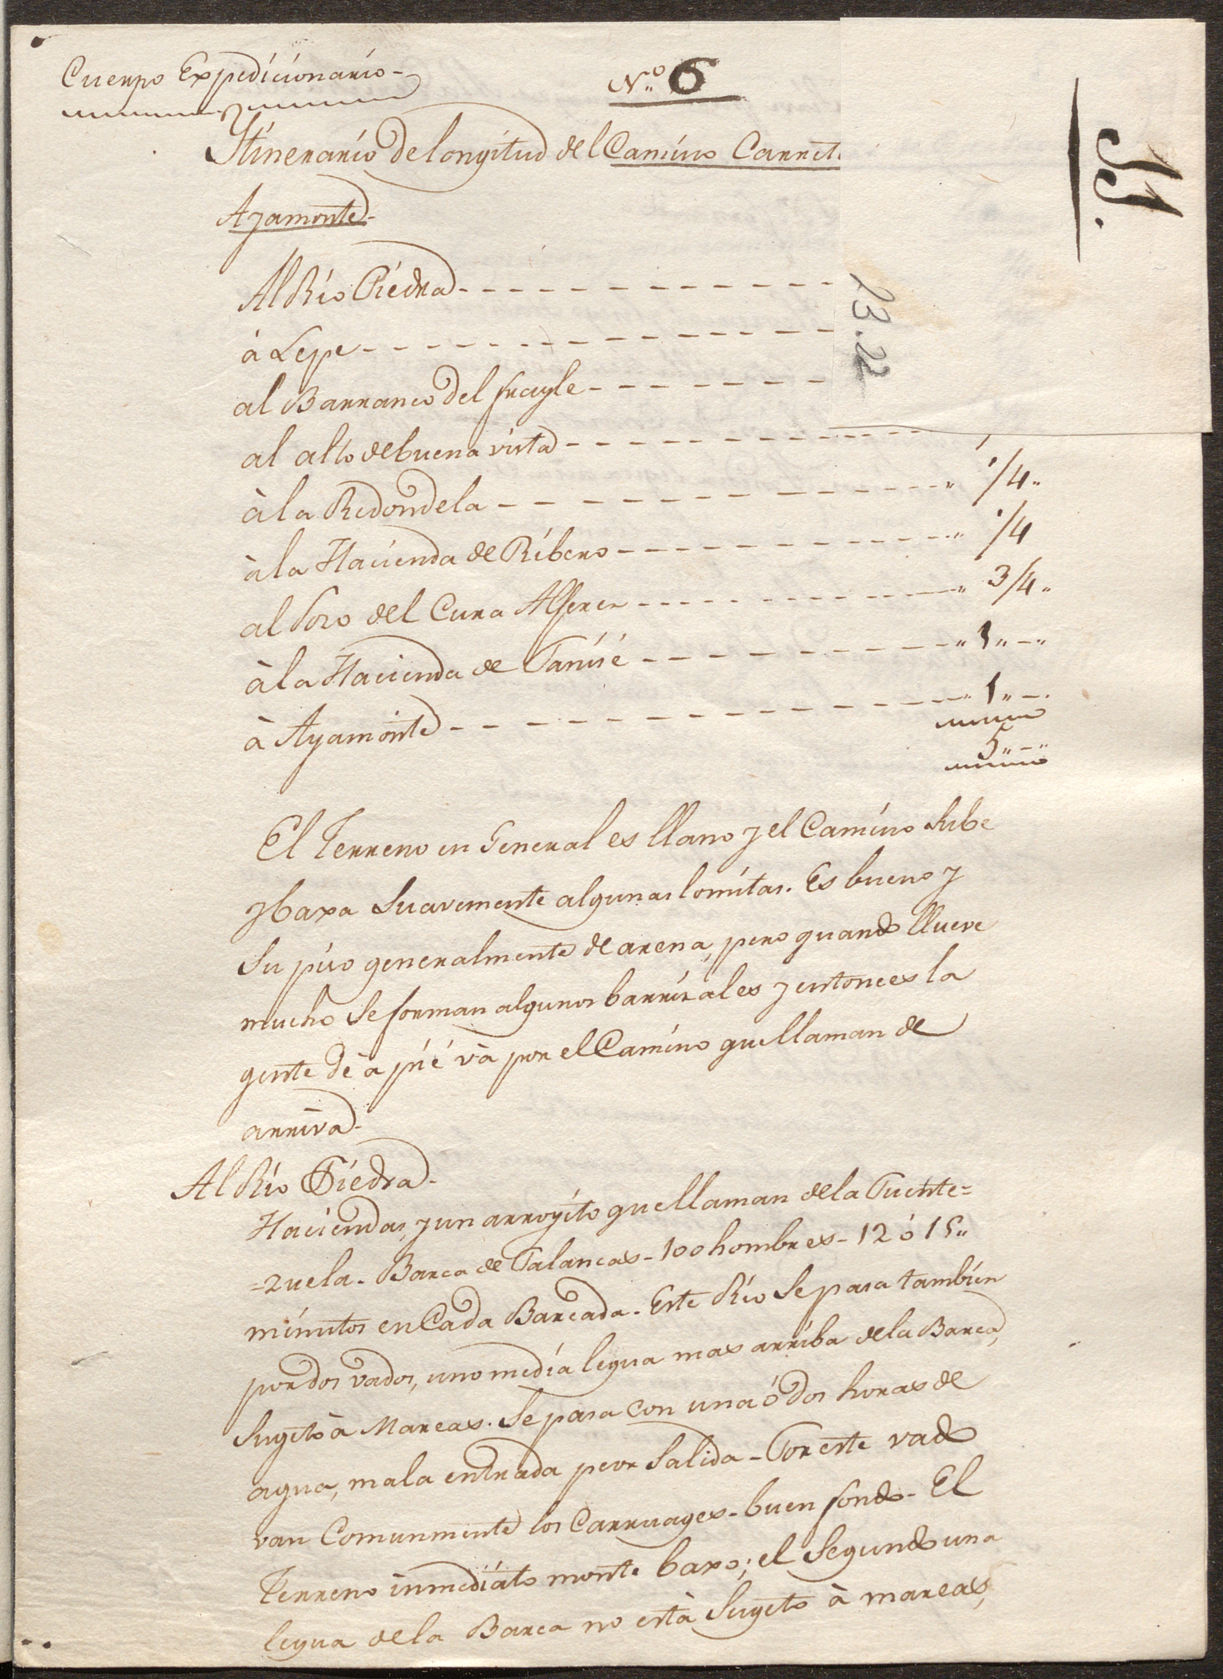 Cuerpo Expedicionario-
Nº 6
Itinerario de longitud del Camino Carret
Ayamonte-
Al Rio Piedra
à Lepe
al Barranco del frayle
al alto de buena vista
à la Redondela 1/4
à la Hacienda de Ribero 1/4
al Pozo del Cura Alferez 3/4
à la Hacienda de 1
à Ayamonte 1
5
El Terreno en General es llano y el Camino sube
y baxa suavemente algunas lomitas. Es bueno y
su piso generalmente de arena, pero quando llueve
mucho se forman algunos barrizales y entonces la
gente de à pié và por el Camino que llaman de
arriva.
Al Rio Piedra-
Haciendas, y un arroyito que llaman de la Fuente=
=zuela - Barca de Palancas - 100 hombres - 12 ó 15
minutos en Cada Barcada - Este Rio se pasa tambien
por dos vados, uno media legua mas arriba de la Barca,
sugeto à Mareas. Se pasa con una ó dos horas de
agua, mala entrada peor salida - Por este vado
van Comunmente los Carruages - buen fondo - El
Terreno inmediàto monte baxo; el segundo una
legua de la Barca no està sugeto à mareas,
11.
23.22